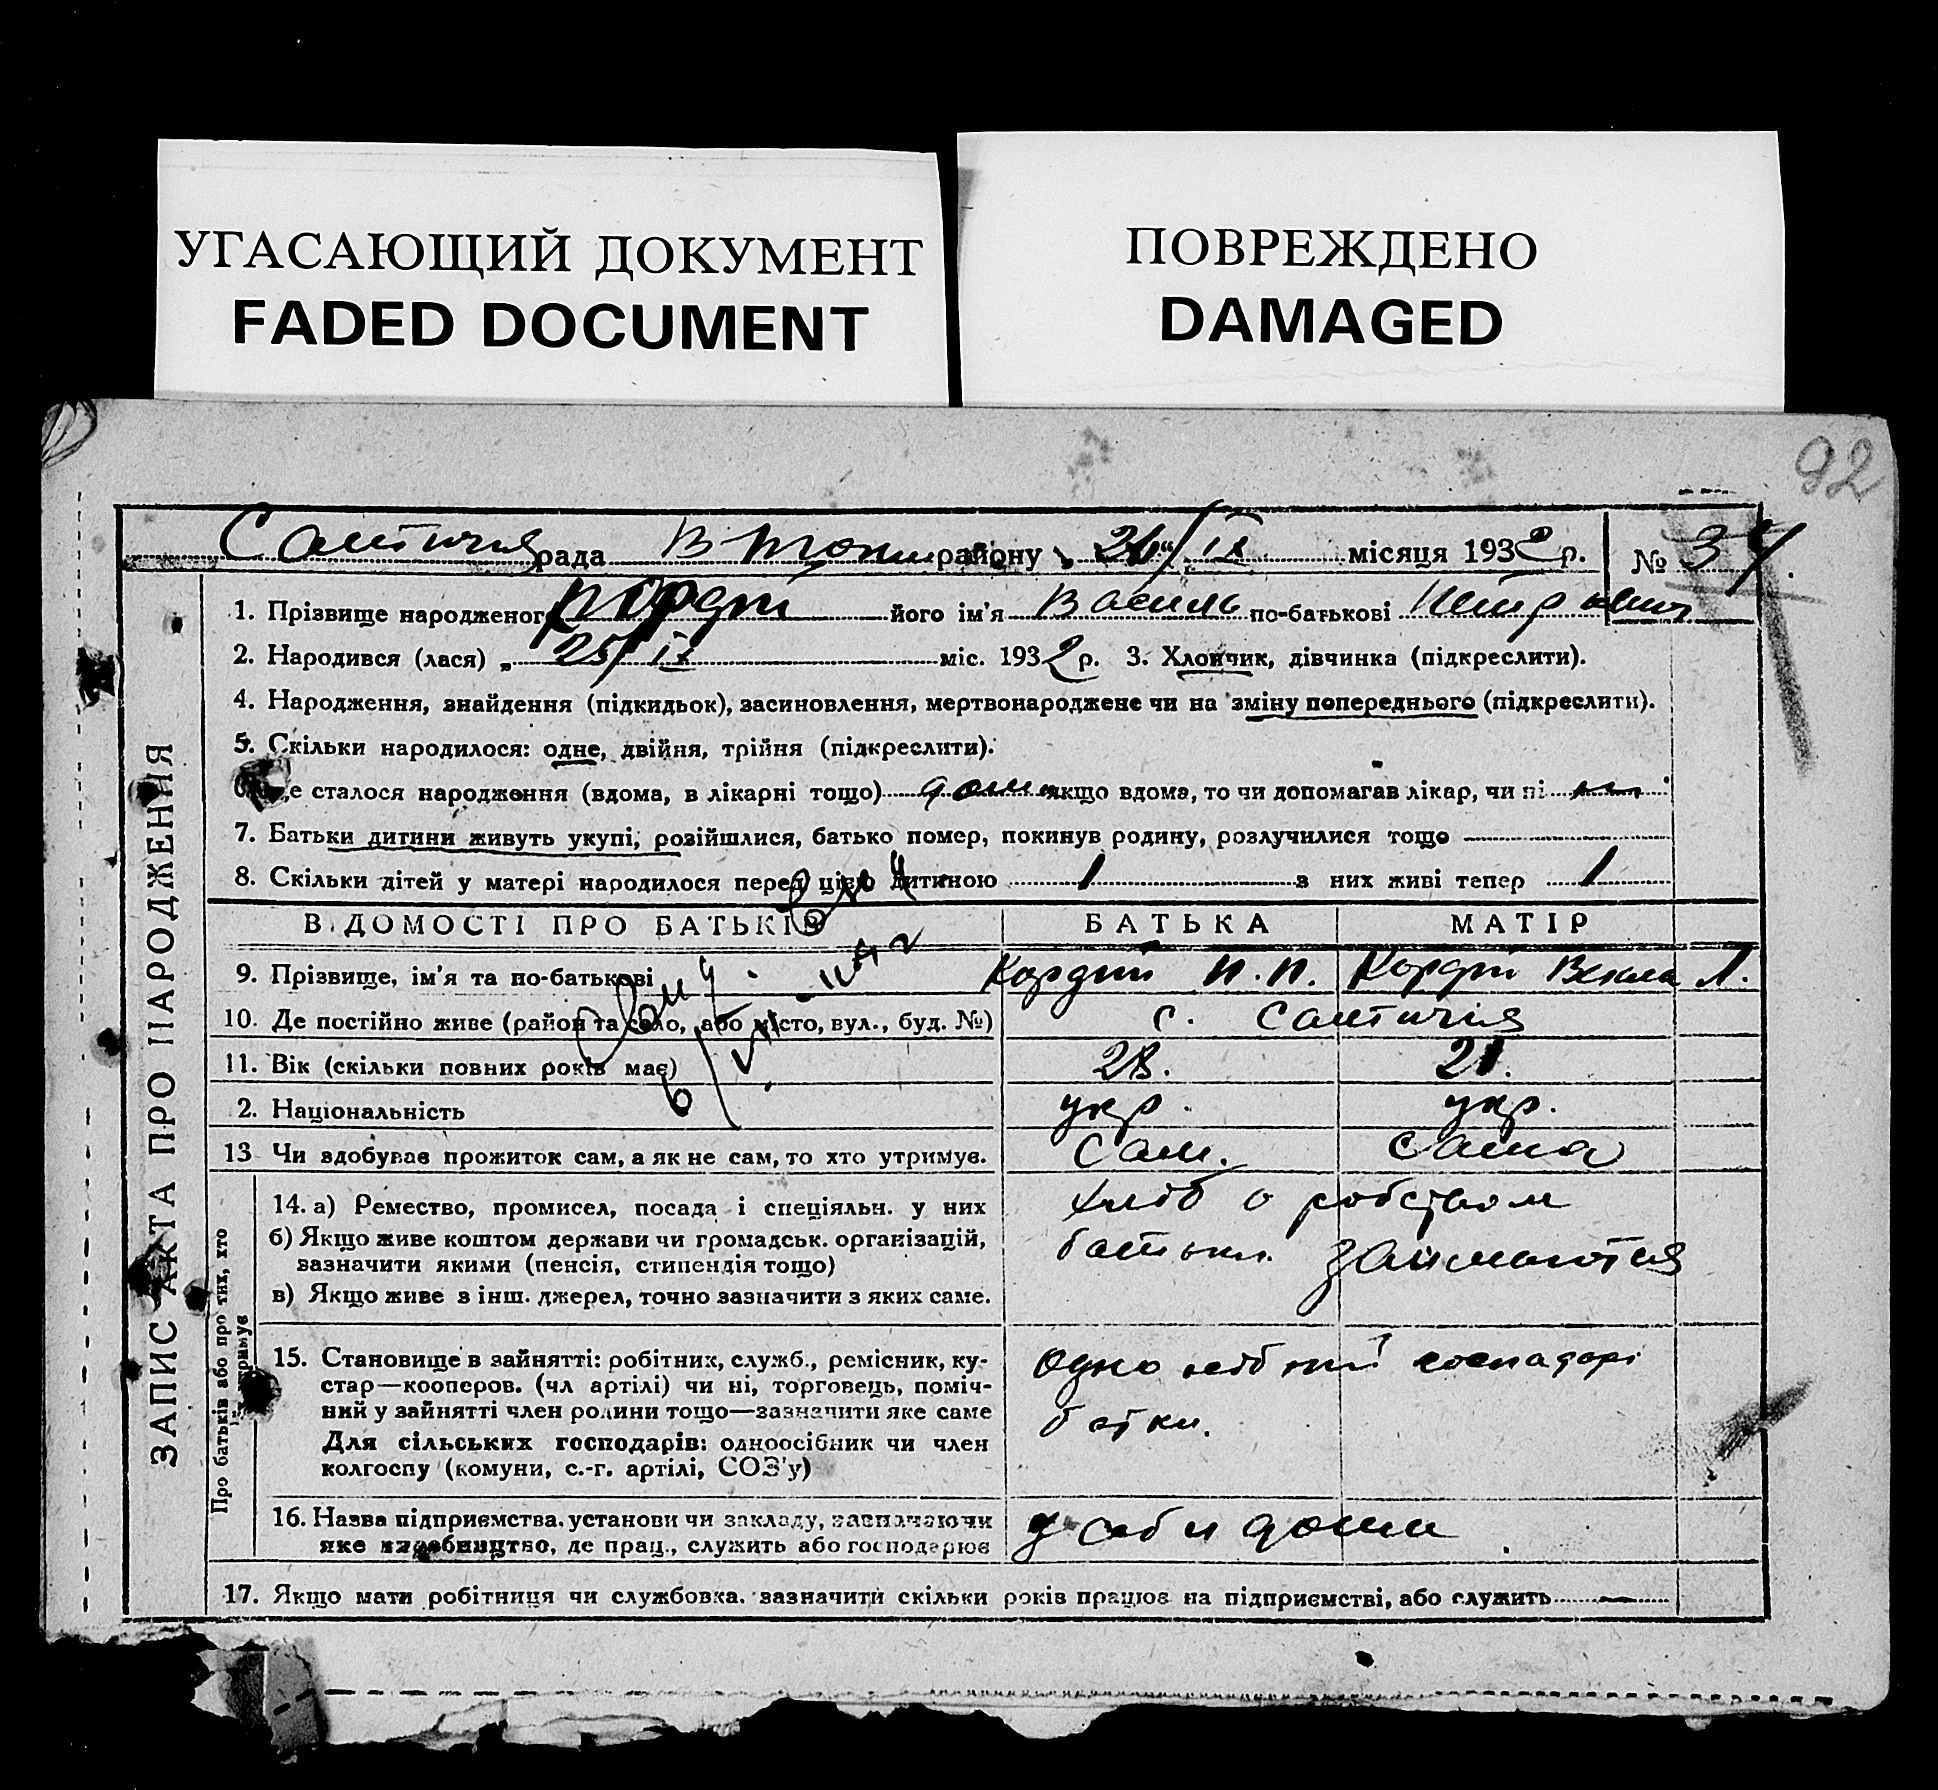 УГАСАЮЩИЙ ДОКУМЕНТ
FADED DOCUMENT
ПОВРЕЖДЕНО
DAMAGED
92
рада району 26/IX місяця 1932 р. № 34
1. Прізвище народженог його ім'я Василь по-батькові Петрович
2. Народився (лася) „ 25/IX міс. 1932 р. 3. Хлопчик, дівчинка (підкреслити).
4. Народження, знайдення (підкидьок), засиновлення, мертвонароджене чи на зміну попереднього (підкреслити).
5. Скільки народилося: одне, двійня, трійня (підкреслити).
е сталося народження (вдома, в лікарні тощо) дома якщо вдома, то чи допомагав лікар, чи ні ні
7. Батьки дитини живуть укупі, розійшлися, батько помер, покинув родину, розлучилися тощо
8. Скільки дітей у матері народилося перед цією дитиною 1 з них живі тепер 1
ВІДОМОСТІ ПРО БАТЬКІВ БАТЬКА МАТІР
9. Прізвище, ім'я та по-батькові Кордій П.П. Кордій Векла Л.
10. Де постійно живе (район та село, або місто, вул., буд. №) с.
11. Вік (скільки повних років має) 28. 21.
2. Національність укр. укр.
13 Чи здобував прожиток сам, а як не сам, то хто утримує. сам. сама
14. а) Ремество, промисел, посада і спеціяльн. у них хліборобством
б) Якщо живе коштом держави чи громадськ. організацій, батьки. займаются
зазначити якими (пенсія, стипендія тощо)
в) Якщо живе з інш. джерел, точно зазначити з яких саме.
15. Становище в зайнятті: робітник, служб., ремісник, ку-
стар—кооперов. (чл артілі) чи ні, торговець, поміч-
ний у зайнятті член родини тощо—зазначити яке саме
Для сільських господарів: одноосібник чи член
колгоспу (комуни, с.-г. артілі, СОЗ'у)
16. Назва підприємства, установи чи закладу, зазначаючи у себи дома
яке виробництво, де прац., служить або господарює
17. Якщо мати робітниця чи службовка, зазначити скільки років працює на підприємстві, або служить —
ЗАПИС АКТА ПРО НАРОДЖЕННЯ
Про батьків або про тих, хто